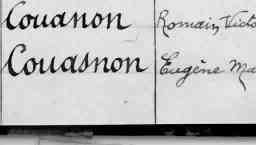 Couanon Romain Victo
Couasnon Eugène Ma